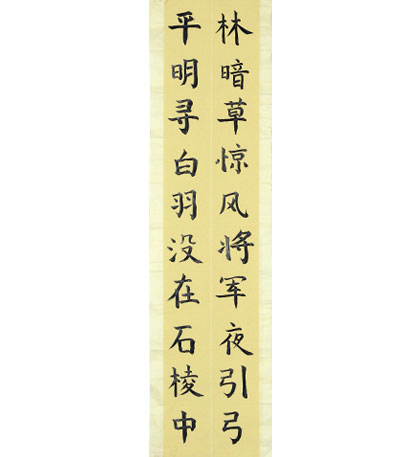 林暗草惊风将军夜引弓
平明寻白羽没在石棱中